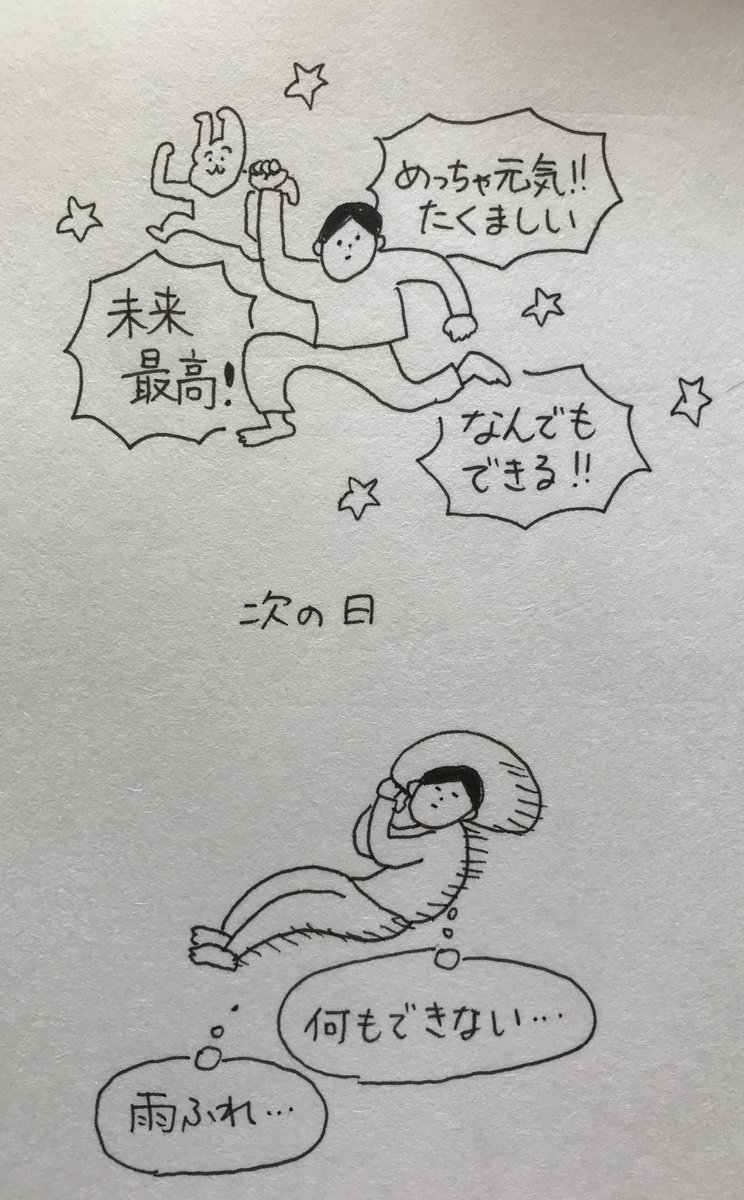 めっちゃ元気!!
たくましい
未来
最高!
なんでも
できる!!
次の日
何もできない…
雨ふれ…